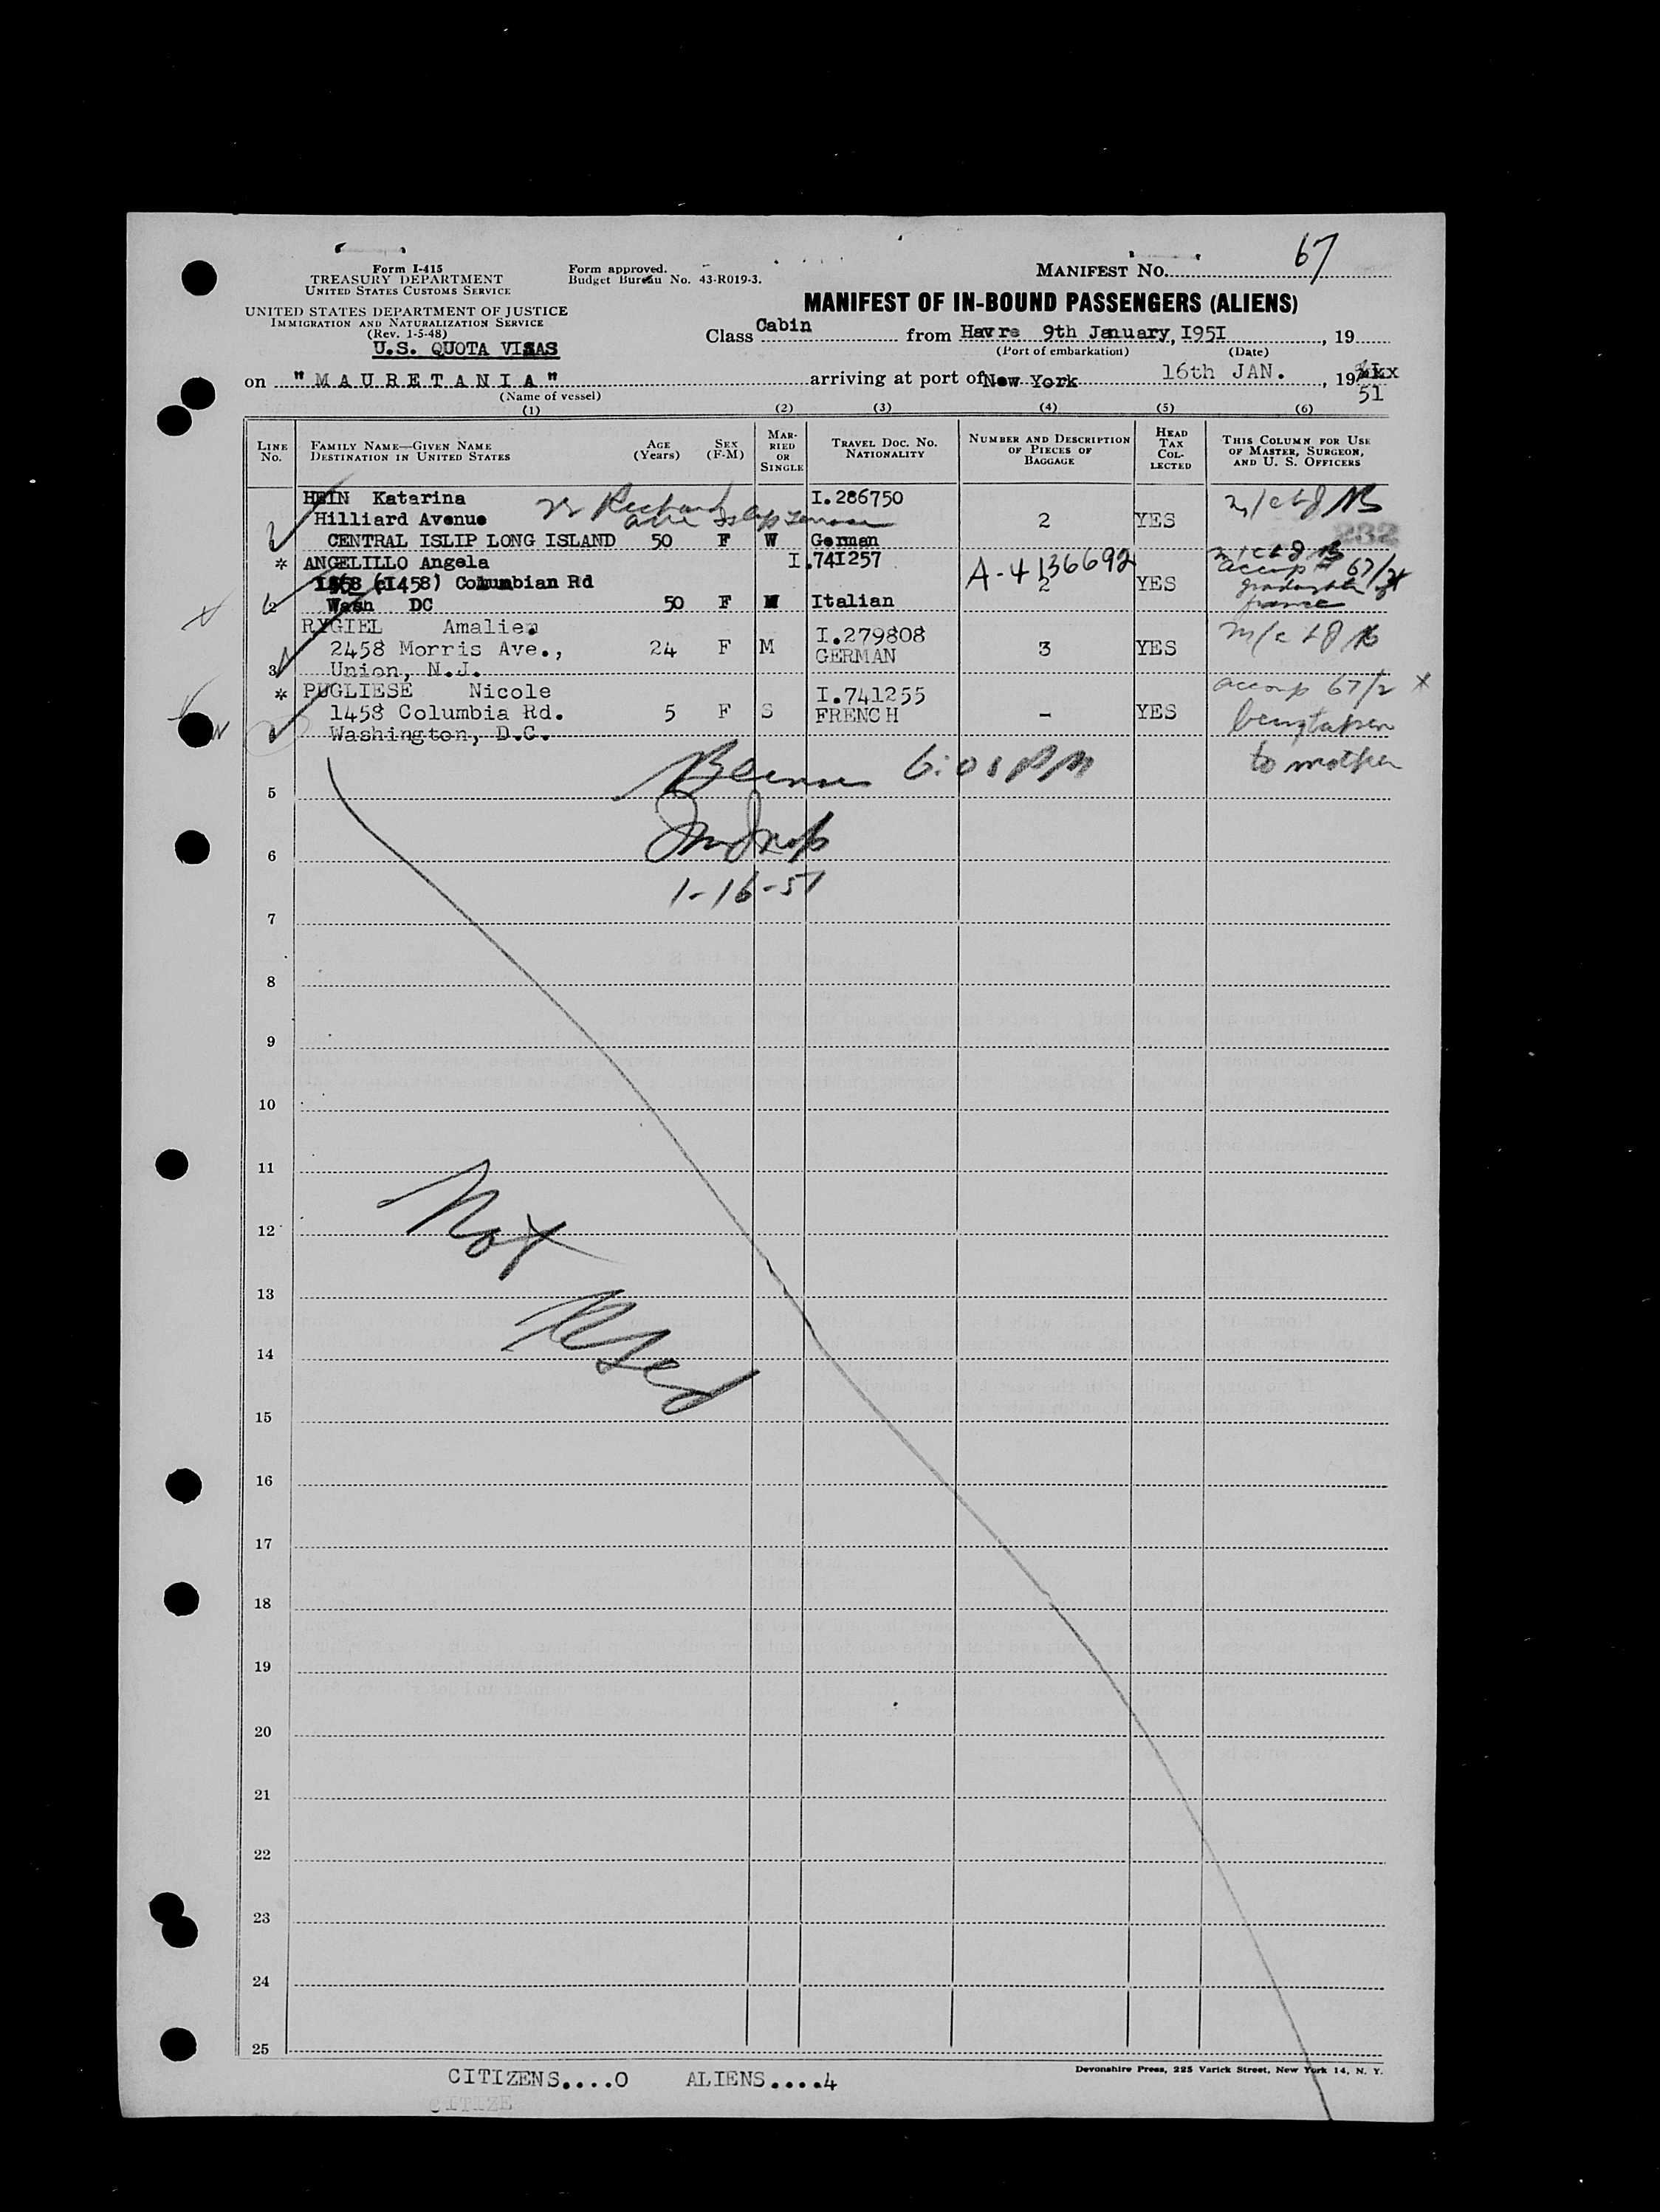 67
Form I-415
TREASURY DEPARTMENT
UNITED STATES CUSTOMS SERVICE
Form approved.
Budget Bureau No. 43-R019-3.
MANIFEST No.
UNITED STATES DEPARTMENT OF JUSTICE
IMMIGRATION AND NATURALIZATION SERVICE
(Rev. 1-5-48)
U.S. QUOTA VISAS
MANIFEST OF IN-BOUND PASSENGERS (ALIENS)
Class Cabin from Havre 9th January, 1951, 19
(Port of embarkation) (Date)
on "MAURETANIA" arriving at port of New York 16th JAN., 19
51
(Name of vessel)
(1) (2) (3) (4) (5) (6)
LINE No. FAMILY NAME—GIVEN NAME DESTINATION IN UNITED STATES AGE (Years) SEX (F-M) MARRIED OR SINGLE TRAVEL DOC. No. NATIONALITY NUMBER AND DESCRIPTION OF PIECES OF BAGGAGE HEAD TAX COLLECTED THIS COLUMN FOR USE OF MASTER, SURGEON, AND U. S. OFFICERS
HEIN Katarina I.286750
Hilliard Avenue 2 YES
CENTRAL ISLIP LONG ISLAND 50 F W German
232
* ANGELILLO Angela I.741257 A-4136692
(1458) Columbian Rd 2 YES
accomp 67/4
Wash DC 50 F M Italian
RYGIEL Amalien I.279808
2458 Morris Ave., 24 F M GERMAN 3 YES
3 Union, N.J.
* PUGLIESE Nicole I.741255 accomp 67/2 x
1458 Columbia Rd. 5 F S FRENCH - YES being taken
Washington, D.C. to mother
6:01 PM
5
6
1-16-51
7
8
9
10
11
12
Not
13
Used
14
15
16
17
18
19
20
21
22
23
24
25
Devonshire Press, 225 Varick Street, New York 14, N. Y.
CITIZENS....0 ALIENS....4
CITIZE